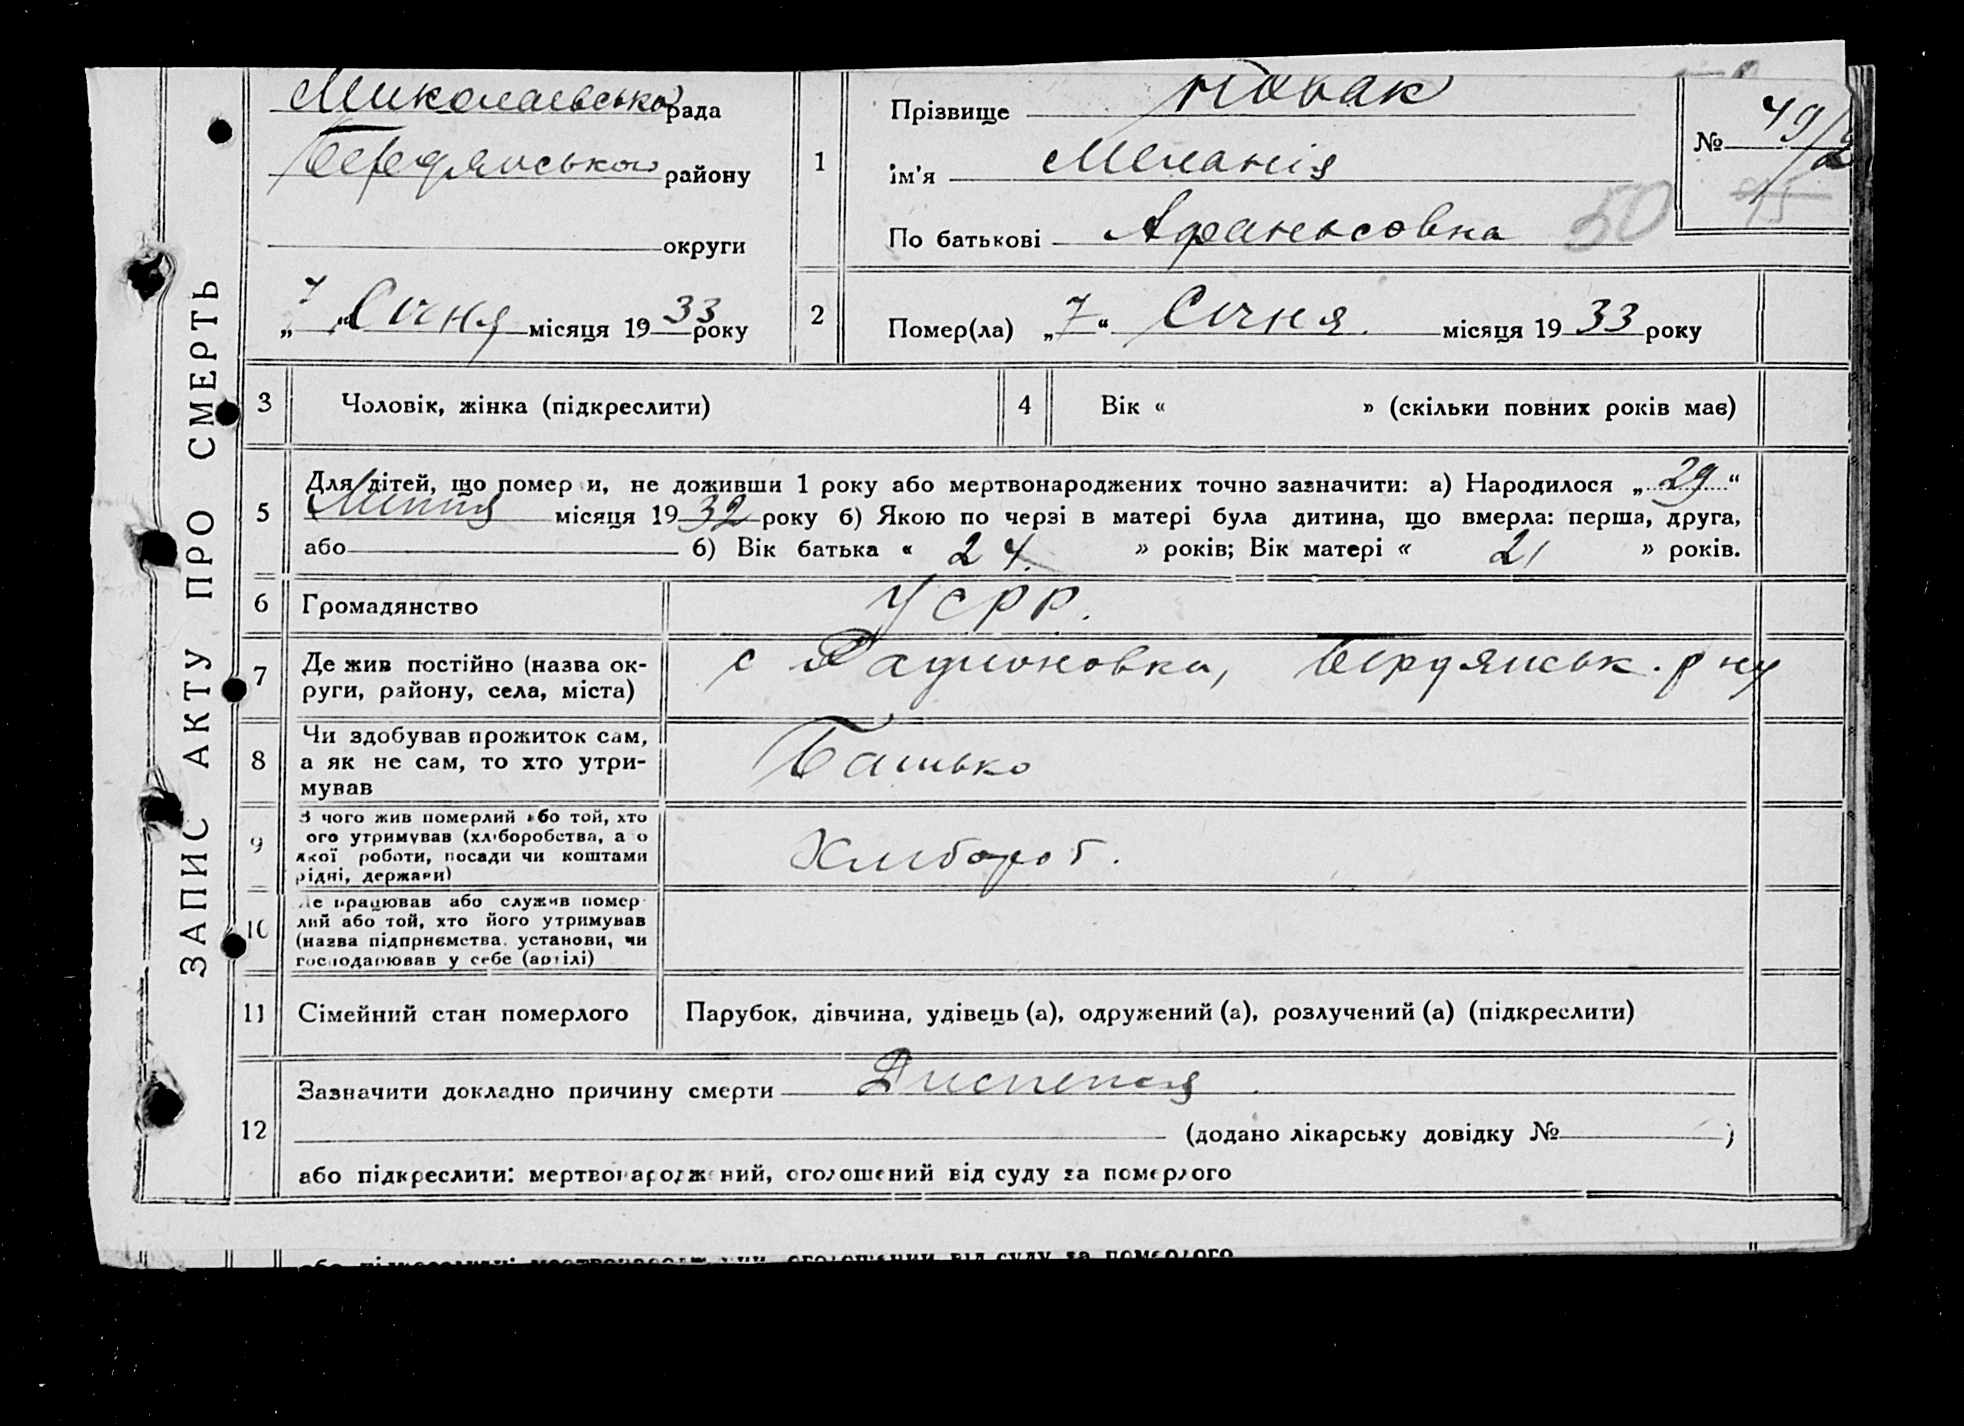 ЗАПИС АКТУ ПРО СМЕРТЬ
Миколаевською рада
Бердянською району
округи
„ 7 “ Січня місяця 19 33 року
1
Прізвище Новак
ім'я Меланія
По батькові Афанасовна
50
№ 49/2
2
Помер(ла) „ 7 “ Січня місяця 19 33 року
3 Чоловік, жінка (підкреслити)
4 Вік « » (скільки повних років має)
5 Для дітей, що помер и, не доживши 1 року або мертвонароджених точно зазначити: а) Народилося „ 29 “
Липня місяця 19 32 року б) Якою по черзі в матері була дитина, що вмерла: перша, друга,
або 6) Вік батька « 24 » років; Вік матері « 21 » років.
6 Громадянство УСРР.
7 Де жив постійно (назва ок-
руги, району, села, міста)
с Радионовка, Бердянськ. р ну
8 Чи здобував прожиток сам,
а як не сам, то хто утри-
мував
Батько
9 З чого жив померлий або той, хто
ого утримував (хліборобства, а о
якої роботи, посади чи коштами
рідні, держави)
Хлибороб.
10 Де працював або служив помер-
лий або той, хто його утримував
(назва підприємства, установи, чи
господарював у себе (артілі)
11 Сімейний стан померлого Парубок, дівчина, удівець (а), одружений (а), розлучений (а) (підкреслити)
12 Зазначити докладно причину смерти Диспепсія
(додано лікарську довідку № )
або підкреслити: мертвонароджений, оголошений від суду за померлого
або підкреслити: мертвонароджений, оголошений від суду за померлого